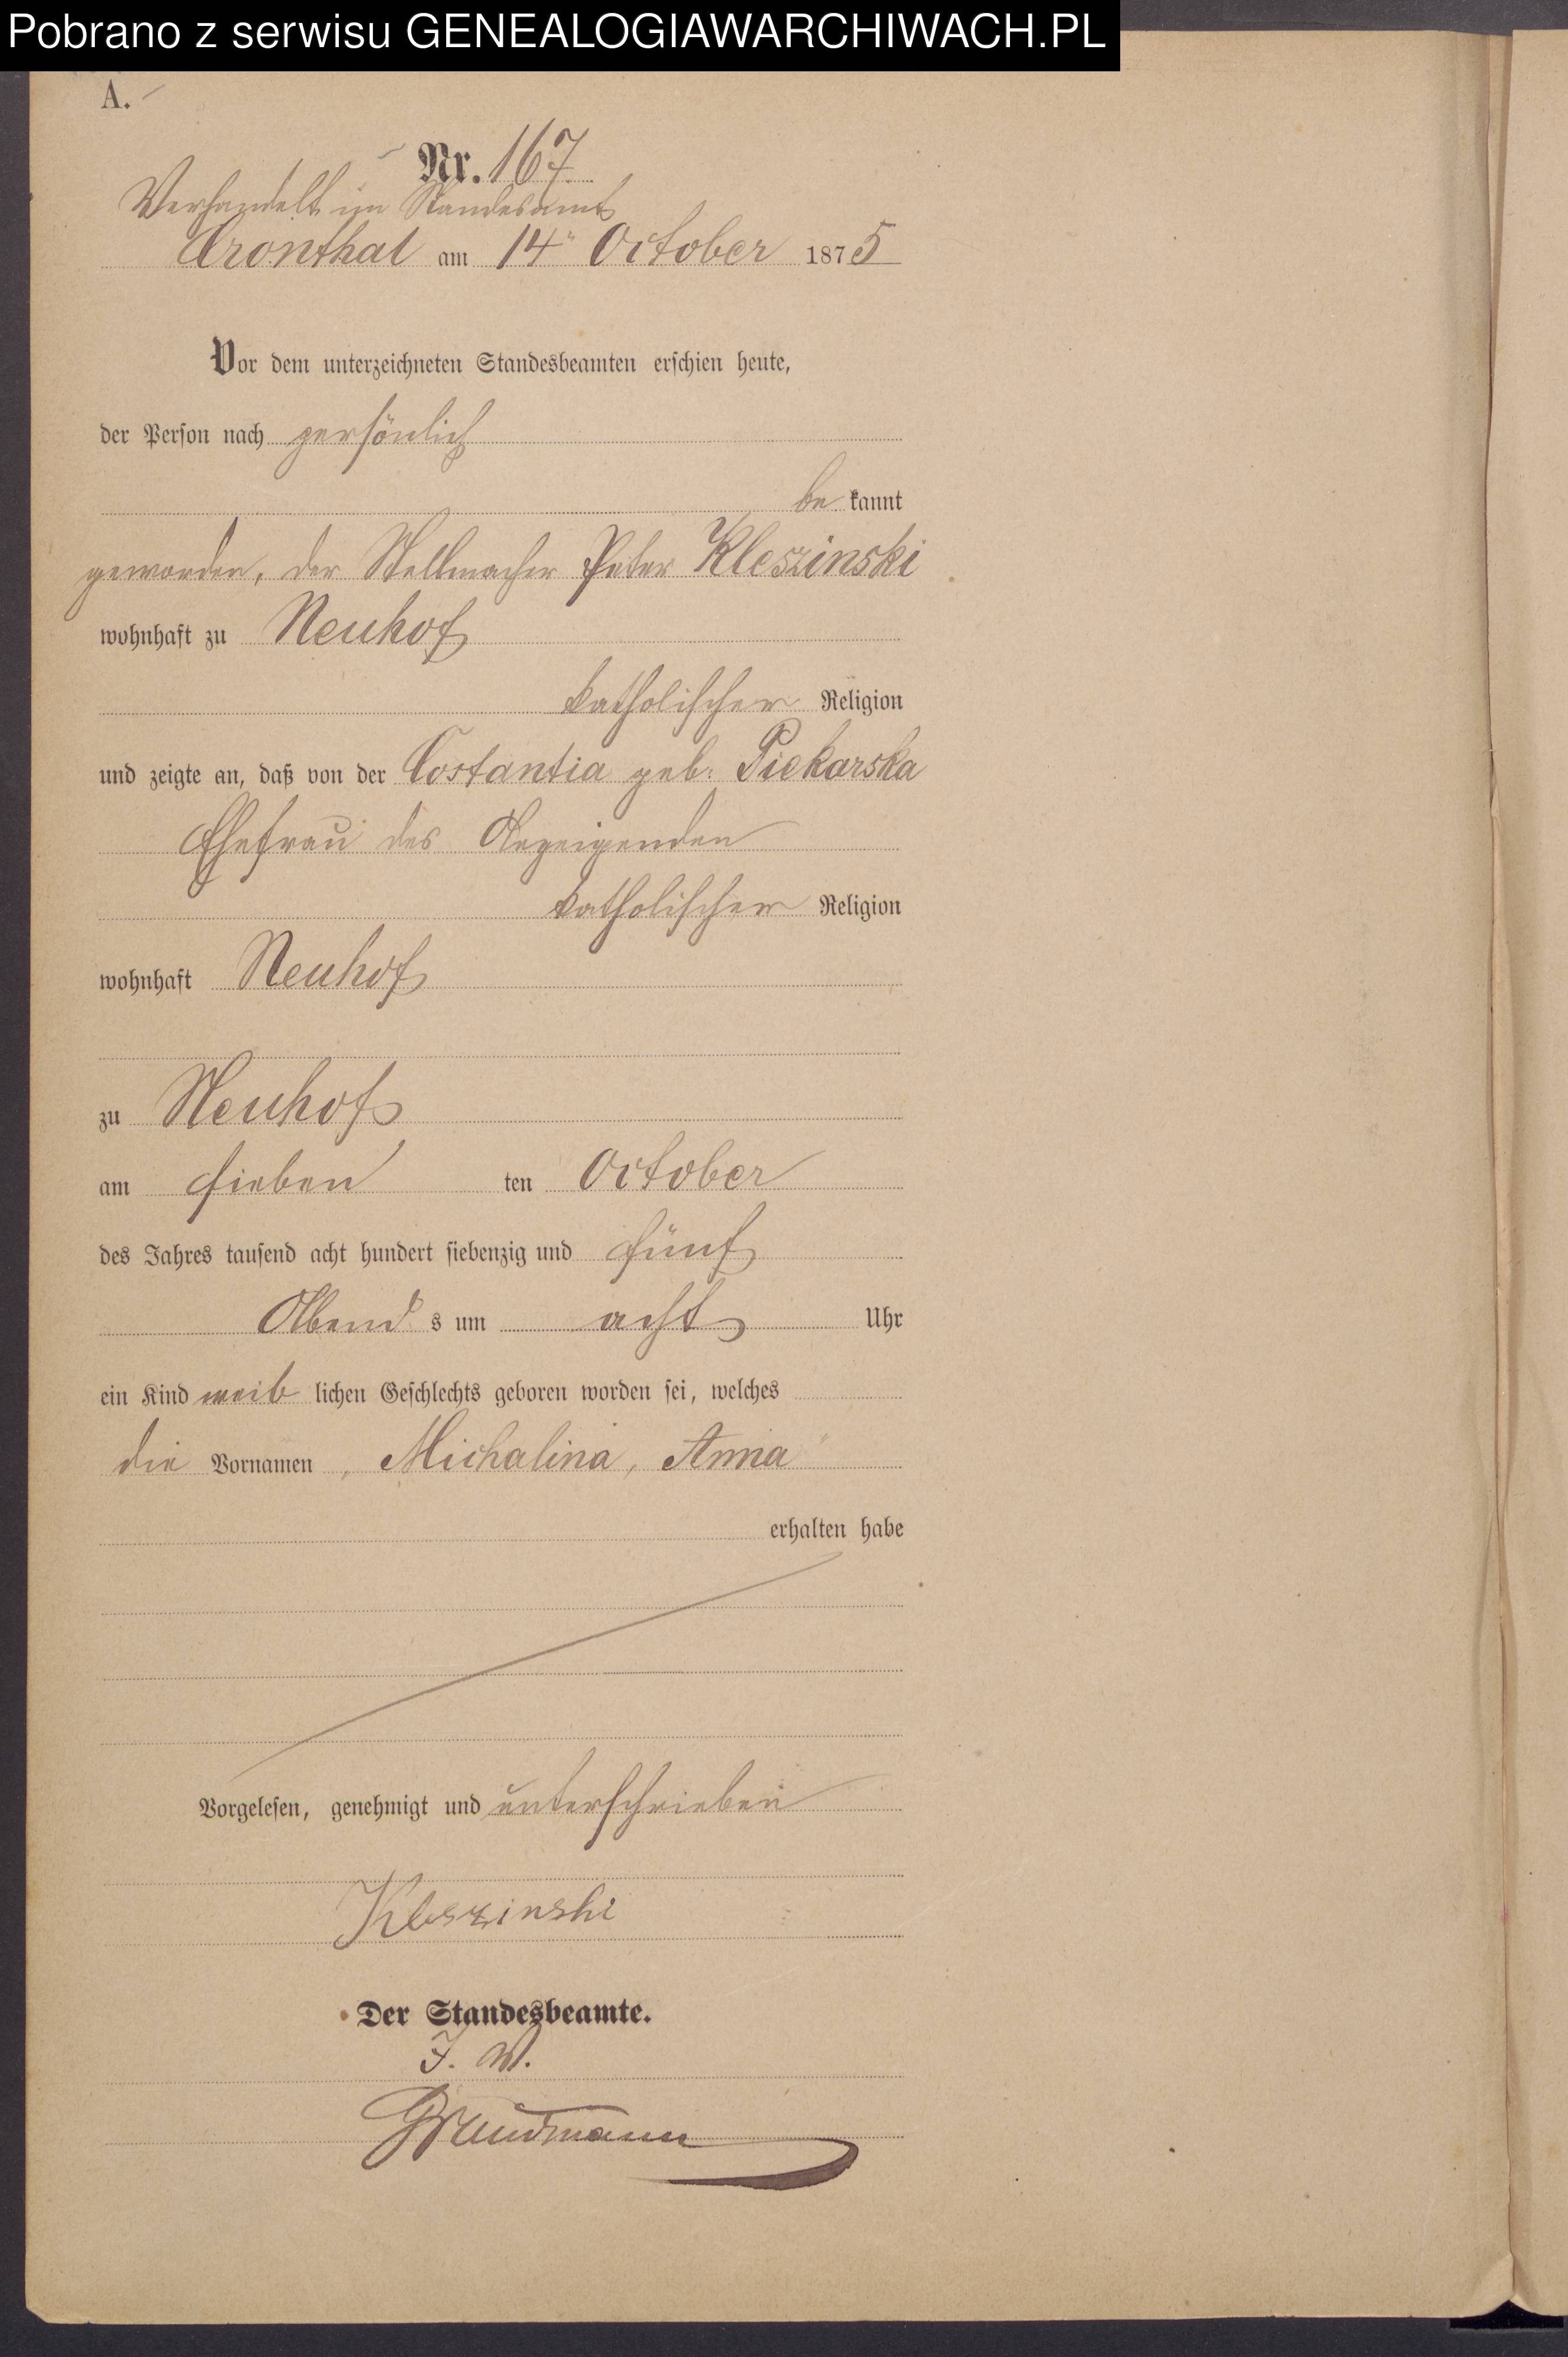 Pobrano z serwisu GENEALOGIAWARCHIWACH.PL
A.
Nr. 167
Verhandelt im Standesamt
Cronthal am 14" October 1875
Vor dem unterzeichneten Standesbeamten erschien heute,
der Person nach persönlich
bekannt
geworden, der Stellmacher Peter Kleszinski
wohnhaft zu Neuhof
katholischer Religion
und zeigte an, daß von der Costantia geb. Piekarska
Ehefrau des Anzeigenden
katholischer Religion
wohnhaft Neuhof
zu Neuhof
am sieben ten October
des Jahres tausend acht hundert siebenzig und fünf
Abends um acht Uhr
ein Kind weiblichen Geschlechts geboren worden sei, welches
die Vornamen „Michalina, Anna"
erhalten habe
Vorgelesen, genehmigt und unterschrieben
Kleszinski
Der Standesbeamte.
J. V.
Graudmann